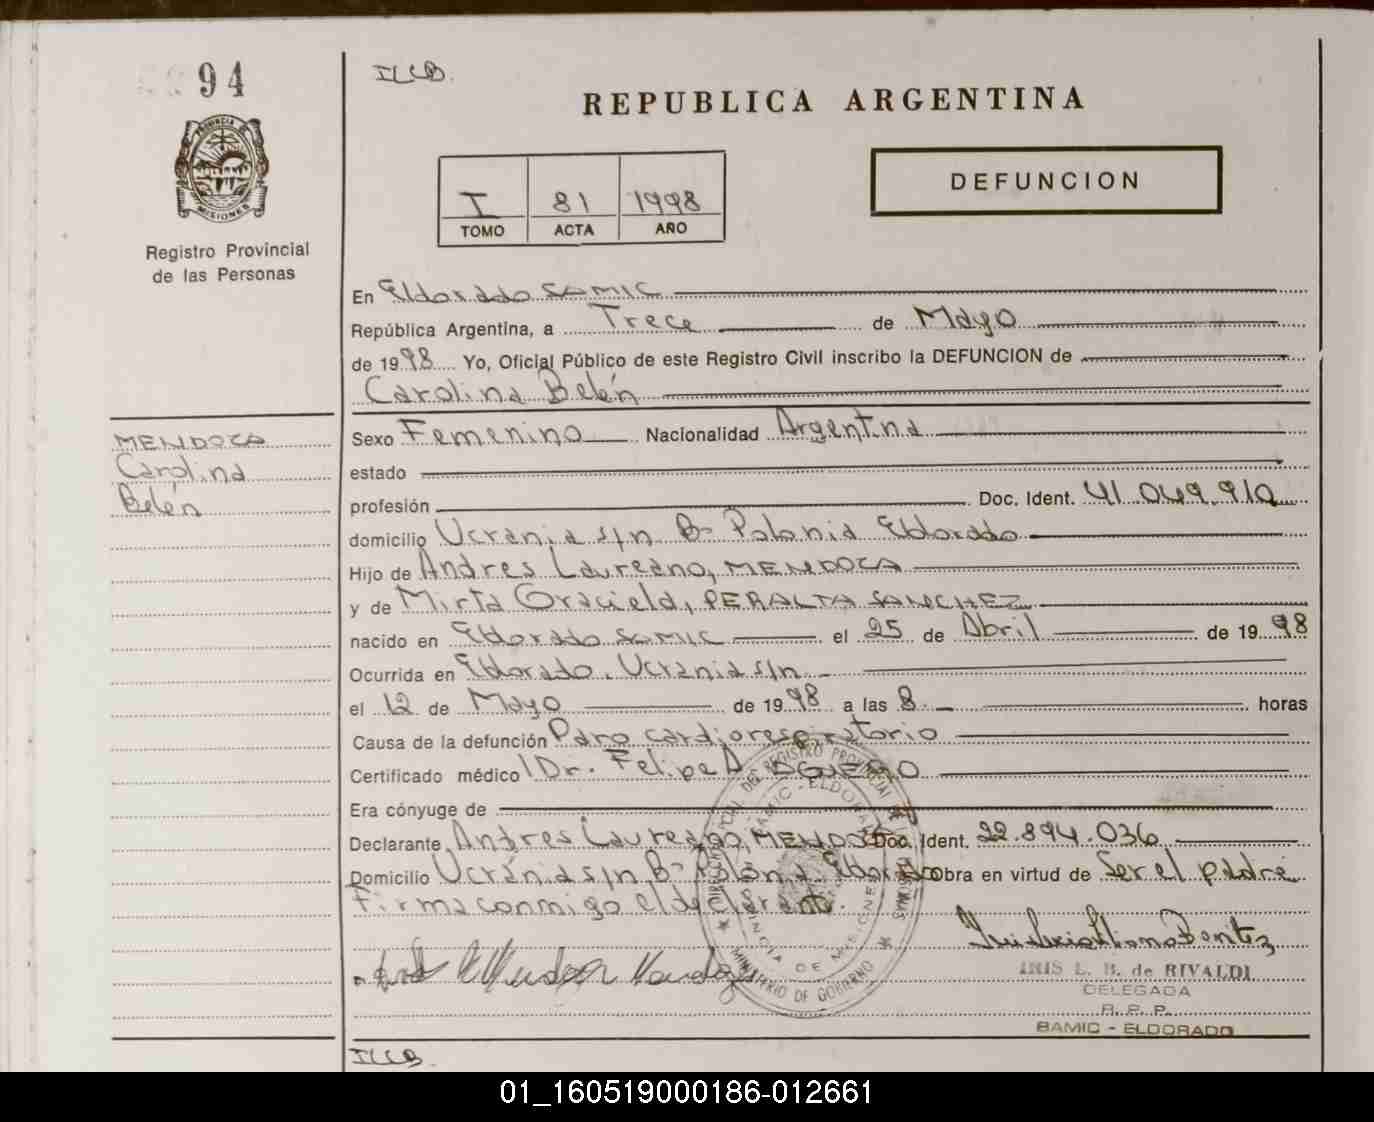 94
ILCB.
REPUBLICA ARGENTINA
PROVINCIA DE
MISIONES
Registro Provincial
de las Personas
I 81 1998
TOMO ACTA AÑO
DEFUNCION
En Eldorado SAMIC
República Argentina, a Trece de Mayo
de 1998 Yo, Oficial Público de este Registro Civil inscribo la DEFUNCION de
Carolina Belén
MENDOCA
Carolina
Belén
Sexo Femenino Nacionalidad Argentina
estado
profesión Doc. Ident. 41.049.910
domicilio Ucrania s/n Bº Polonia Eldorado
Hijo de Andres Laureano, MENDOCA
y de Mirta Graciela, PERALTA SANCHEZ
nacido en Eldorado SAMIC el 25 de Abril de 1998
Ocurrida en Eldorado. Ucrania s/n
el 12 de Mayo de 1998 a las 8 horas
Causa de la defunción Paro cardiorespiratorio
Certificado médico Dr. Felipe A. AGUERO
Era cónyuge de
Declarante Andres Laureano, MENDOCA Doc. Ident. 22.894.036
Domicilio Ucránia s/n Bº Polonia. Eldorado obra en virtud de Ser el padre
Firma conmigo el declarante.
IRIS L. B. de RIVALDI
DELEGADA
R. P. P.
SAMIC - ELDORADO
ILCB.
01_160519000186-012661